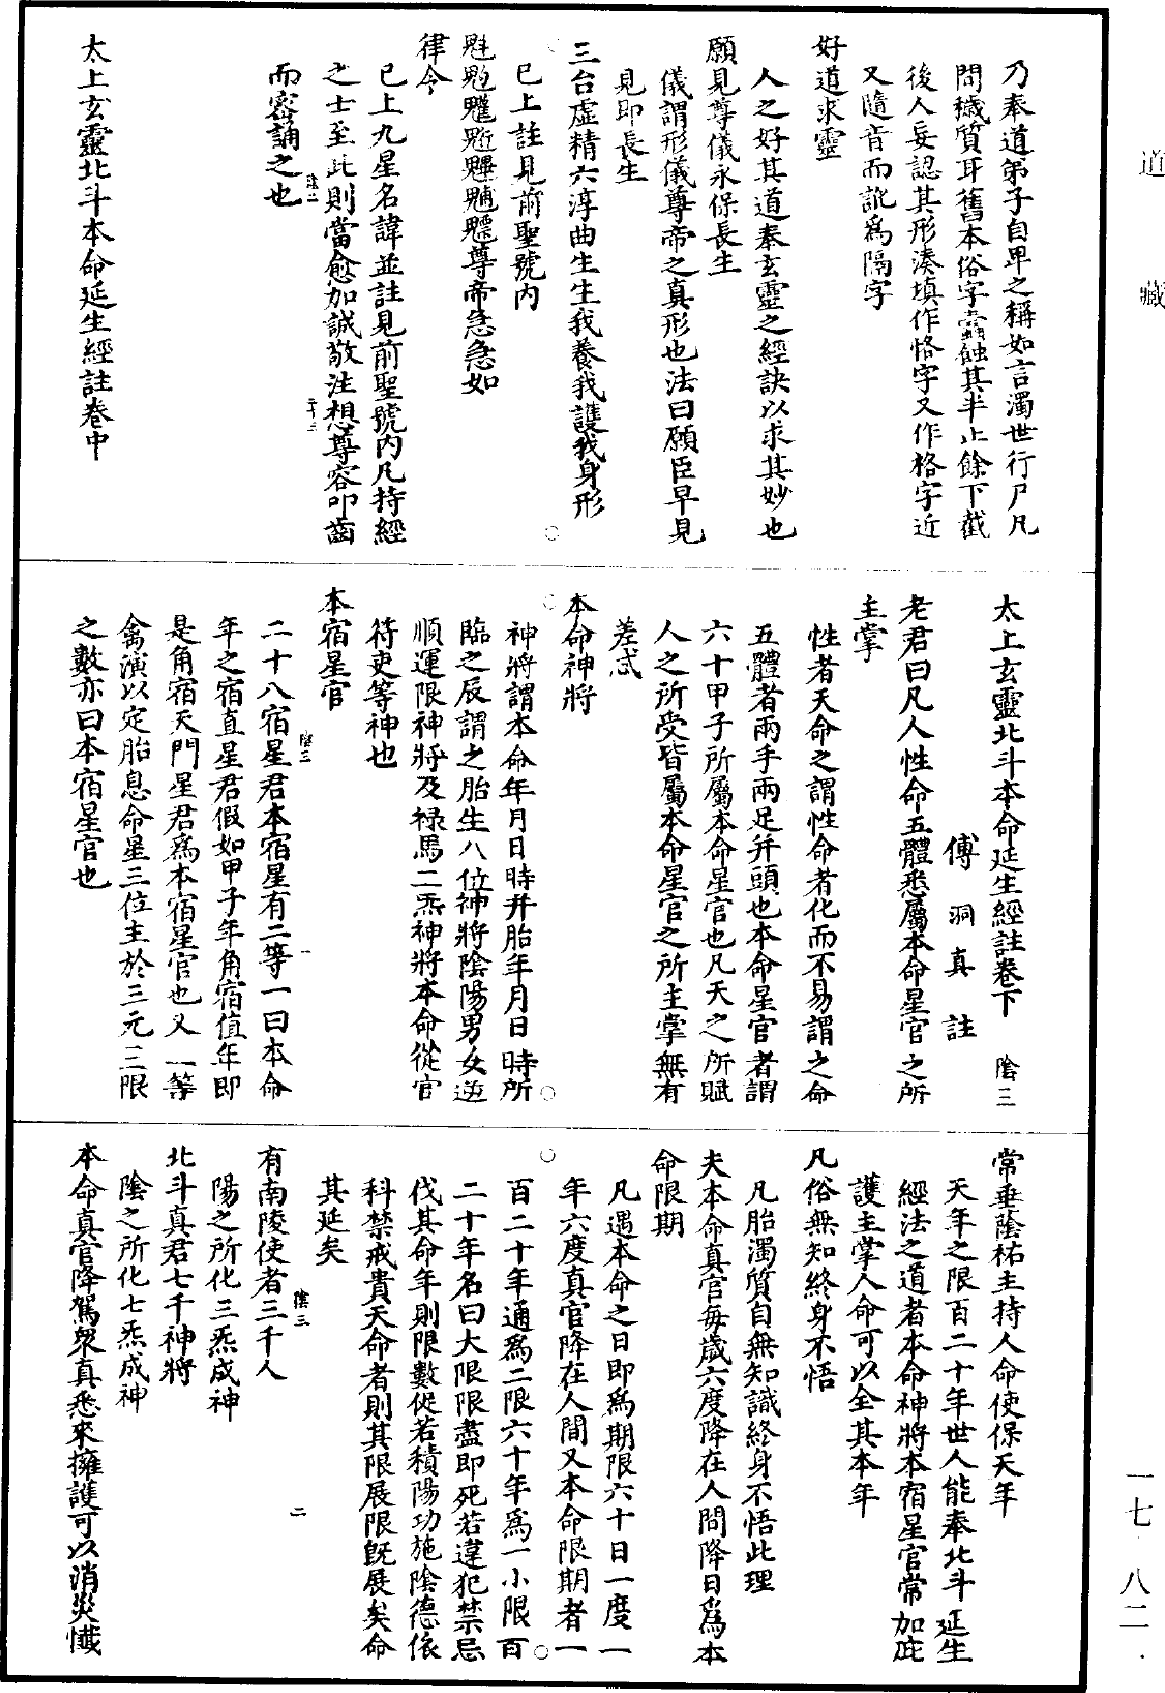 道藏
乃奉道弟子自卑之稱如言濁世行尸凡
間穢質耳舊本俗字蠹蝕其半止餘下截
後人妄認其形湊填作恪字又作格字近
又隨音而訛爲隔字
好道求靈
人之好其道奉玄靈之經訣以求其妙也
願見尊儀永保長生
儀謂形儀尊帝之真形也法曰願臣早見
見即長生
三台虛精六淳曲生生我養我護我身形
已上註見前聖號内
魁𩲃䰢魓𩵄䰷魒尊帝急急如
律令
已上九星名諱並註見前聖號内凡持經
之士至此則當愈加誠敬注想尊容叩齒
而密誦之也
太上玄靈北斗本命延生經註卷中
太上玄靈北斗本命延生經註卷下 陰三
傅洞真註
老君曰凡人性命五體悉屬本命星官之所
主掌
性者天命之謂性命者化而不易謂之命
五體者兩手兩足并頭也本命星官者謂
六十甲子所屬本命星官也凡天之所賦
人之所受皆屬本命星官之所主掌無有
差忒
本命神將
神將謂本命年月日時并胎年月日時所
臨之辰謂之胎生八位神將陰陽男女逆
順運限神將及祿馬二炁神將本命從官
符吏等神也
本宿星官
二十八宿星君本宿星有二等一曰本命
年之宿直星君假如甲子年角宿值年即
是角宿天門星君爲本宿星官也又一等
禽演以定胎息命星三位主於三元三限
之數亦曰本宿星官也
常垂蔭祐主持人命使保天年
天年之限百二十年世人能奉北斗延生
經法之道者本命神將本宿星官常加庇
護主掌人命可以全其本年
凡俗無知終身不悟
凡胎濁質自無知識終身不悟此理
夫本命真官每歲六度降在人間降日爲本
命限期
凡遇本命之日即爲期限六十日一度一
年六度真官降在人間又本命限期者一
百二十年通爲二限六十年爲一小限百
二十年名曰大限限盡即死若違犯禁忌
伐其命年則限數促若積陽功施陰德依
科禁戒貴天命者則其限展限既展矣命
其延矣
有南陵使者三千人
陽之所化三炁成神
北斗真君七千神將
陰之所化七炁成神
本命真官降駕衆真悉來擁護可以消災懺
一七·八二